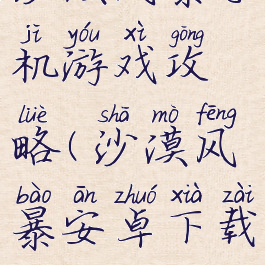 jī yóu xì gōng
机游戏攻
lüè shā mò fēng
略(沙漠风
bào ān zhuó xià zài
暴安卓下载